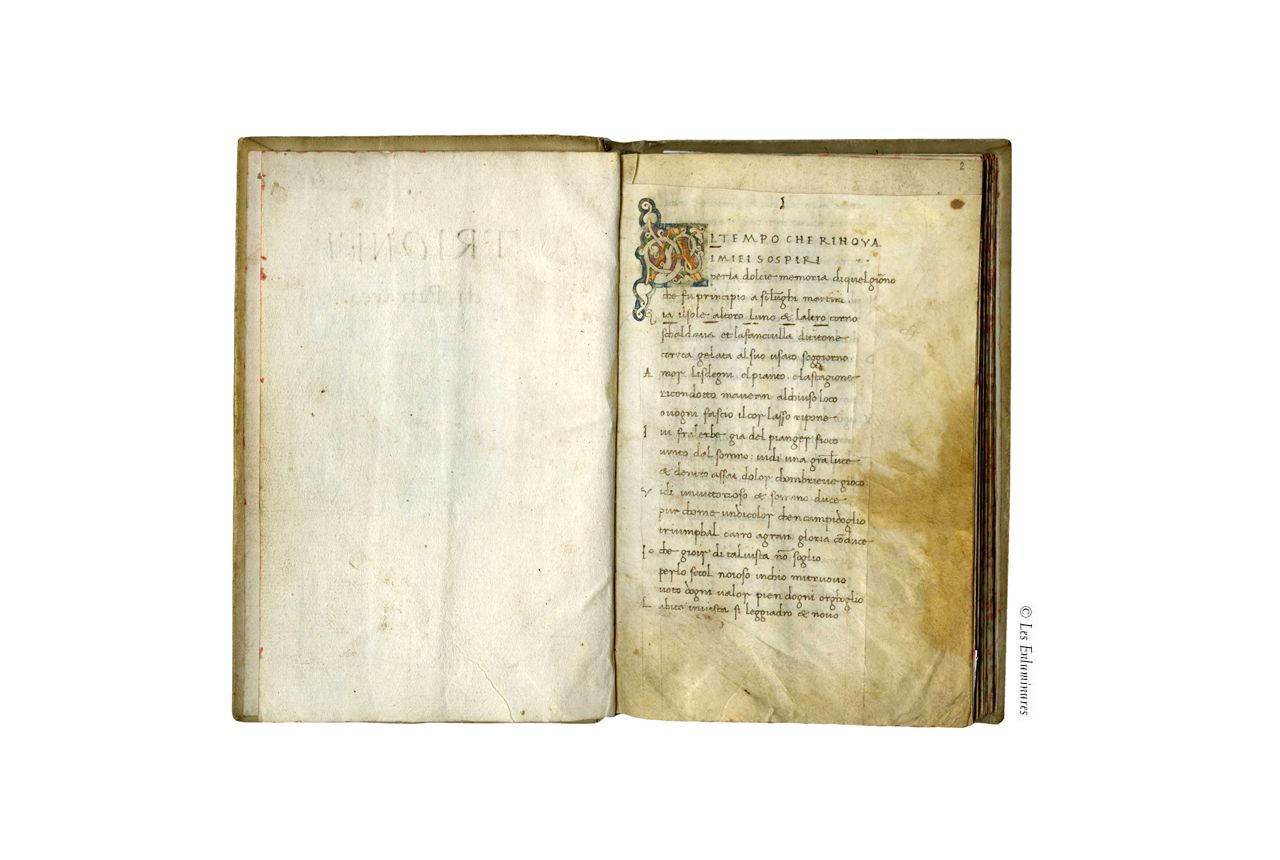 2
A L TEMPO CHE RINOVA
I MIEI SOSPIRI
per la dolcie memoria di quel giorno
che fu principio a si lunghi martiri
Gia il sole al toro luno & laltro corno
schaldava et la fanciulla di titone
correa gelata al suo usato soggiorno
A mor li sdegni el pianto e la stagione
ricondotto mavean al chiuso loco
ovogni fascio il cor lasso ripone
I vi fral erbe gia del pianger fioco
vinto dal somno vidi una gran luce
& dentro assai dolor chombrieve gioco
V idi un vittorioso & sommo duce
pur chome un di color chen campidoglio
triumphal carro a gran gloria conduce
I o che gioir di tal vista non soglio
per lo secol noioso in chio mi truovo
voto dogni valor pien dogni orghoglio
L abito in vista si leggiadro & novo
© Les Enluminures